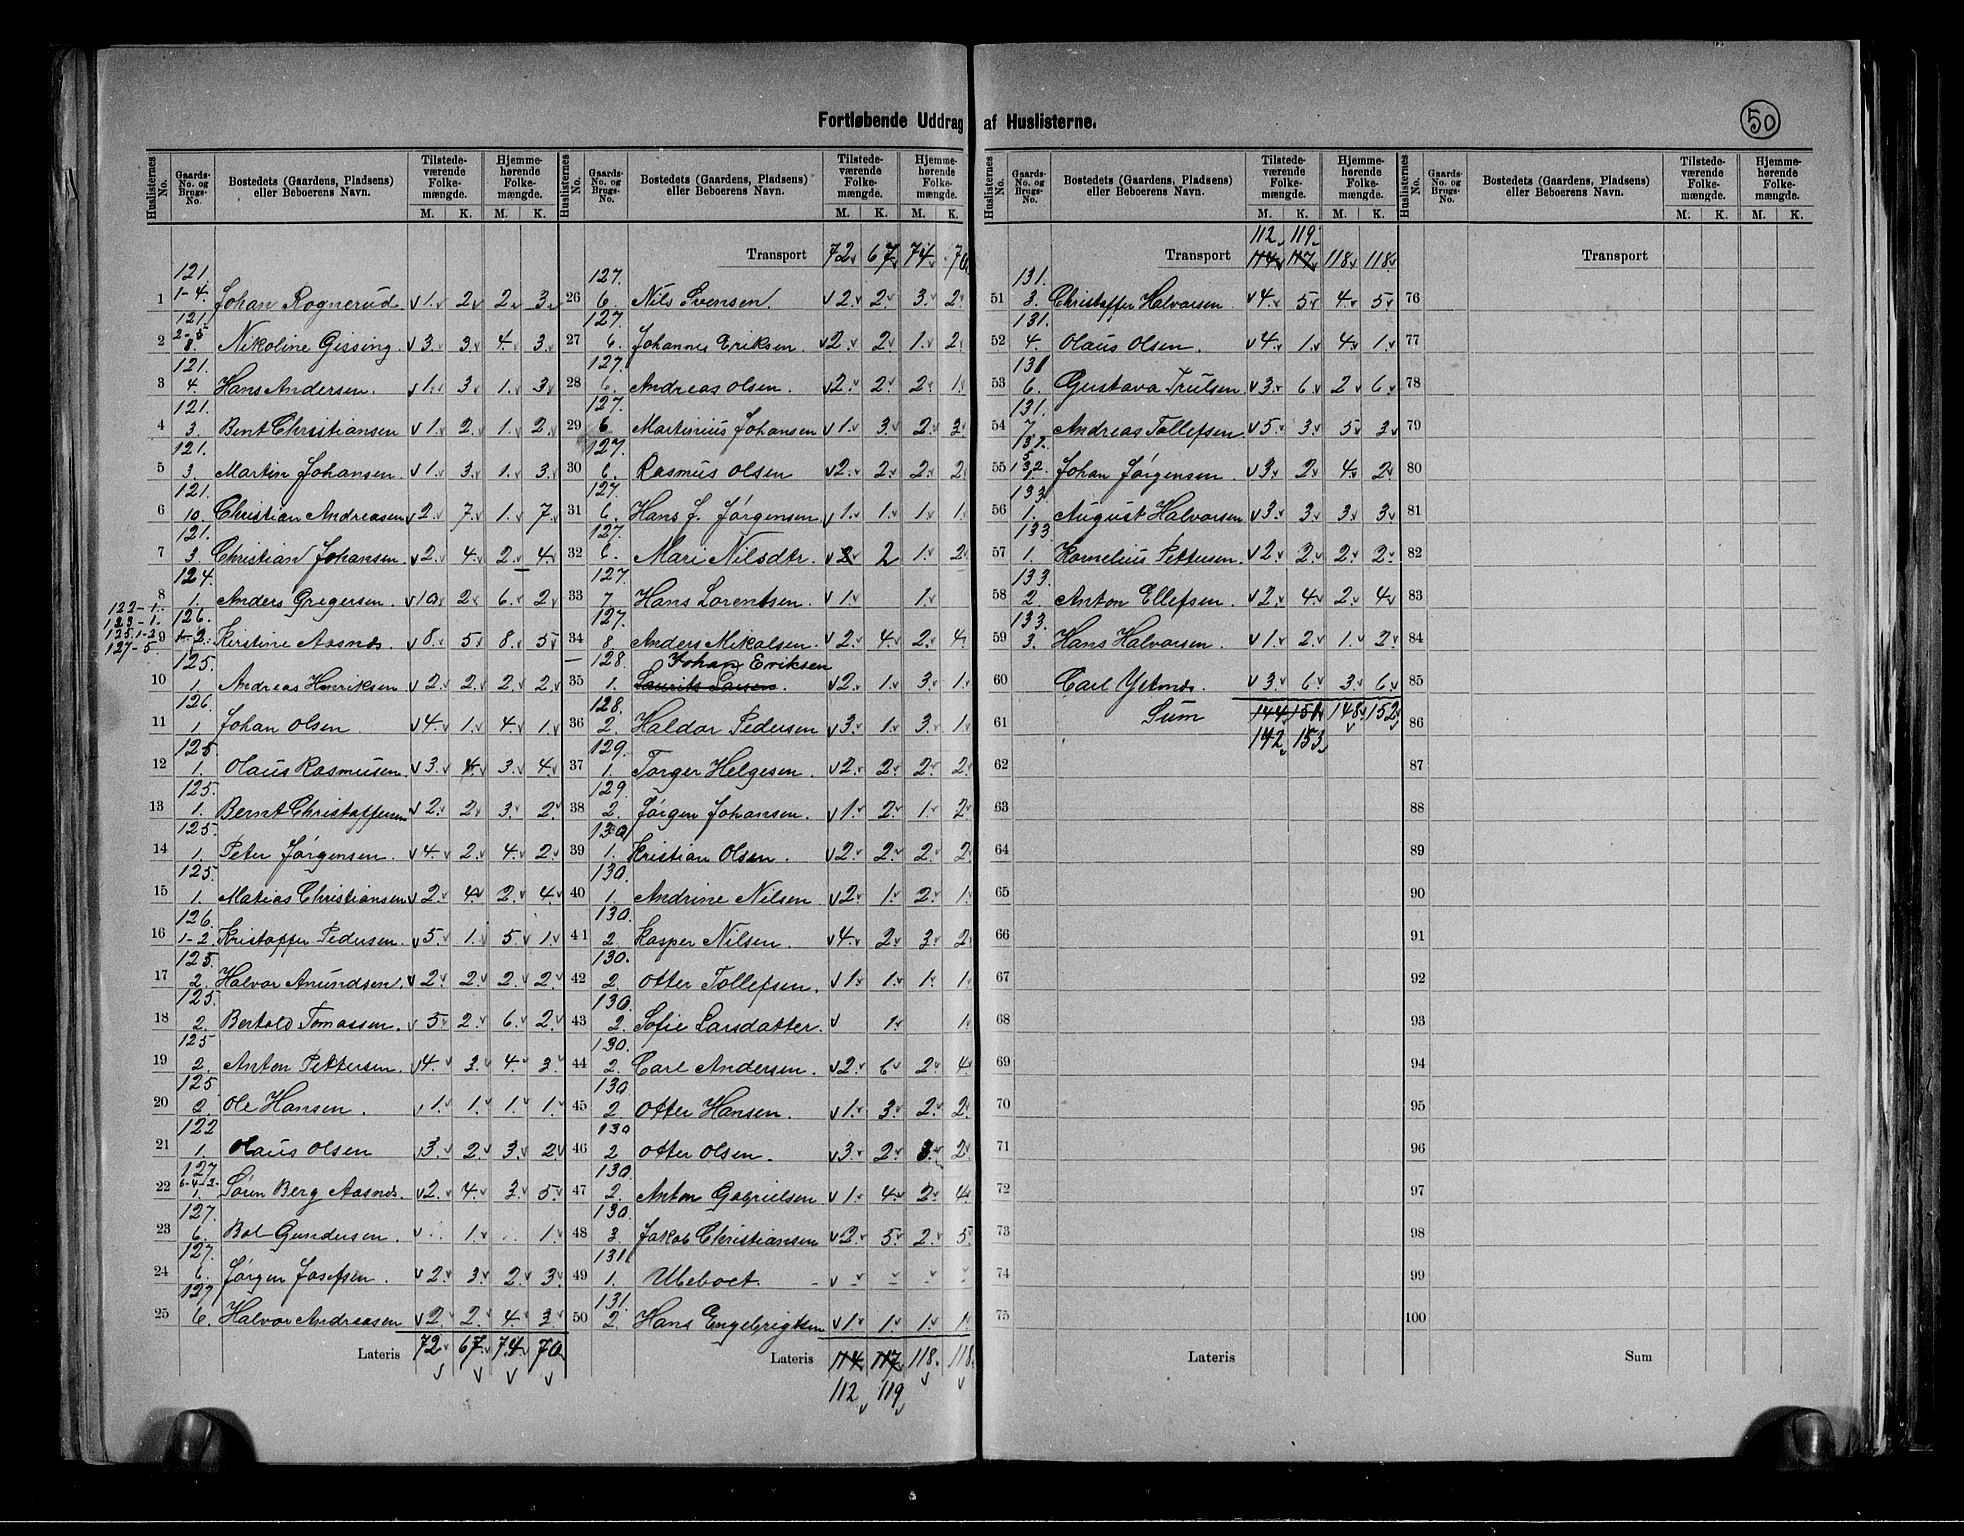 Fortløbende Uddrag af Huslisterne.
50
Huslisternes No. Gaards-No. og Brugs-No. Bostedets (Gaardens, Pladsens) eller Beboerens Navn. Tilstedeværende Folkemængde. M. K. Hjemmehørende Folkemængde. M. K.
1 121. 1-4. Johan Rognerud 1. 2. 2. 3.
2 121. 2-5 8. Nikoline Gissing 3. 3. 4. 3.
3 121. 4 Hans Andersen. 1. 3. 1. 3.
4 121. 3. Bent Christiansen 1. 2. 1. 2.
5 121. 3. Martin Johansen 1. 3. 1. 3.
6 121. 10. Christian Andreasen 2. 7. 1. 7.
7 121. 3. Christian Johansen. 2. 4. 2. 4.
8 124. 1. Anders Gregersen. 10. 2. 6. 2.
122-1.
123-1.
125.1-2
127-5.
9 126. 1-2. Kerstine Aasnes. 8. 5. 8. 5.
10 125. 1. Andreas Henriksen 2. 2. 2. 2.
11 126. 1. Johan Olsen 4. 1. 4. 1.
12 125 1. Olaus Rasmusen 3. 4. 3. 4.
13 125. 1. Bernt Christoffersen 2. 2. 3. 2.
14 125. 1. Peter Jørgensen. 4. 2. 4. 2.
15 125. 1. Matias Christiansen 2. 4. 2. 4.
16 126. 1-2. Kristoffer Pedersen. 5. 1. 5. 1.
17 125. 2. Halvor Anundsen. 2. 2. 2. 2.
18 125. 2. Bertold Tomassen. 5. 2. 6. 2.
19 125 2. Anton Pettersen. 4. 3. 4. 3.
20 125 2. Ole Hansen. 1. 1. 1. 1.
21 122 1. Olaus Olsen 3. 2. 3. 2.
22 127 6-4-2- 1. Søren Berg Aasnes. 2. 4. 3. 5.
23 127. 6. Bol Gundersen. 1. 1.
24 127. 6. Jørgen Josefsen. 2. 3. 2. 3.
25 127 6. Halvor Andreasen 2. 2. 4. 3.
Lateris 72. 67. 74. 70.
Huslisternes No. Gaards-No. og Brugs-No. Bostedets (Gaardens, Pladsens) eller Beboerens Navn. Tilstedeværende Folkemængde. M. K. Hjemmehørende Folkemængde. M. K.
Transport 72 67 74 70
26 127. 6. Nils Svensen. 2. 2. 3. 2.
27 127. 6. Johannes Eriksen. 2. 2. 1. 2
28 127. 6. Andreas Olsen. 2. 2. 2. 1.
29 127. 6. Martinius Johansen 1. 3. 2. 3.
30 127. 6. Rasmus Olsen 2. 2. 2. 2
31 127. 6. Hans J. Jørgensen 1. 1. 1. 1.
32 127. 6. Mari Nilsdtr. 2 1. 2
33 127. 7. Hans Lorentsen. 1. 1.
34 127. 8. Anders Mikalsen. 2. 4. 2. 4
35 128. 1. Johan Eriksen Laurits Larsen. 2. 1. 3. 1.
36 128. 2. Haldor Pedersen 3. 1. 3. 1.
37 129. 1. Torger Helgesen. 2. 2. 2. 2
38 129. 2. Jørgen Johansen. 1. 2. 1. 2
39 130. 1. Kristian Olsen. 2. 2. 2. 2
40 130. 1. Andrine Nilsen 2. 1. 2. 1.
41 130. 2. Kasper Nilsen. 4. 2. 3. 2
42 130. 2. Otter Tollefsen. 1. 1. 1. 1
43 130. 2. Sofie Larsdatter. 1. 1.
44 130. 2. Carl Andersen. 2. 6. 2. 4.
45 130 2 Otter Hansen. 1. 3. 2. 2.
46 130 2 Otter Olsen. 3. 2. 3. 2
47 130 2. Anton Gabrielsen 1. 4. 2. 4.
48 130. 3. Jakob Christiansen 2. 5. 2. 5
49 131. 1. Ubeboet. - - - -
50 131. 2. Hans Engebrigtsen 1. 1. 1. 1.
Lateris 114 117 118. 118.
112 119
Huslisternes No. Gaards-No. og Brugs-No. Bostedets (Gaardens, Pladsens) eller Beboerens Navn. Tilstedeværende Folkemængde. M. K. Hjemmehørende Folkemængde. M. K.
112 119
Transport 114 117 118 118
51 131. 3. Christoffer Halvorsen 4. 5. 4. 5.
52 131. 4. Olaus Olsen. 4. 1. 4. 1.
53 131 6. Gustava Trulsen 3. 6. 2. 6.
54 131. 7. Andreas Tollefsen 5. 3. 5. 3
55 132. 1. Johan Jørgensen. 3. 2. 4. 2.
56 133 1. August Halvorsen 3. 3. 3. 3.
57 133. 1. Kornelius Pettersen. 2. 2. 2. 2.
58 133. 2. Anton Ellefsen 2. 4. 2. 4.
59 133. 3. Hans Halvorsen 1. 2. 1. 2.
60 Carl Ystnes. 3. 6. 3. 6.
61 Sum 144 151 148. 152.
142 153
62
63
64
65
66
67
68
69
70
71
72
73
74
75
Lateris
Huslisternes No. Gaards-No. og Brugs-No. Bostedets (Gaardens, Pladsens) eller Beboerens Navn. Tilstedeværende Folkemængde. M. K. Hjemmehørende Folkemængde. M. K.
Transport
76
77
78
79
80
81
82
83
84
85
86
87
88
89
90
91
92
93
94
95
96
97
98
99
100
Sum